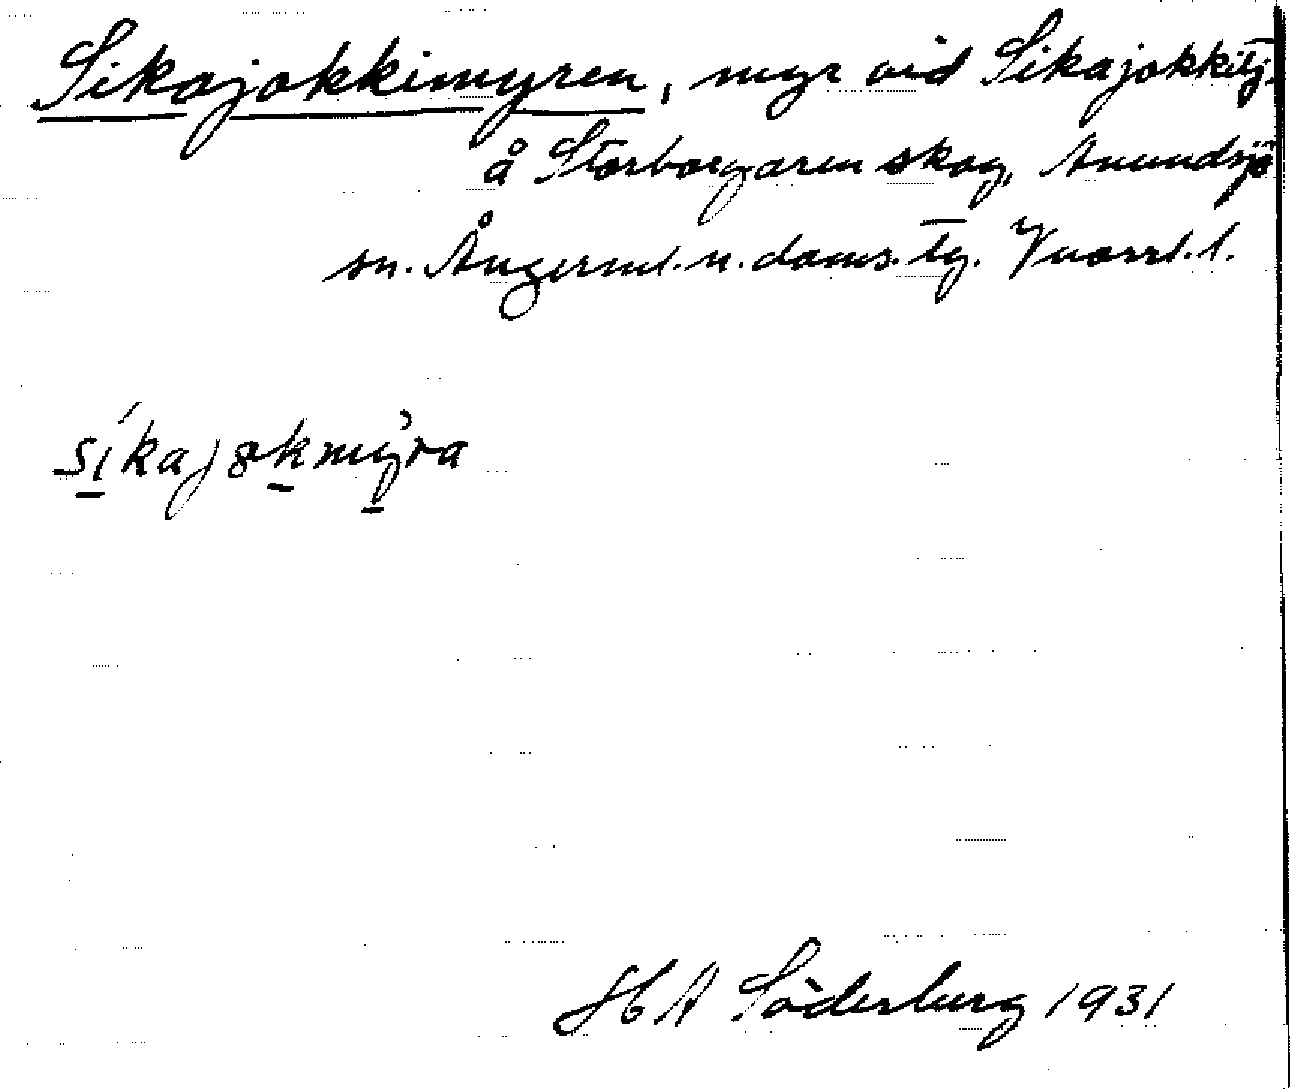 Sikajokkimyren, myr vid Sikajokkitj.
å Storborgaren skog, Anundsjö
sn. Ångerml. n. doms. tg.
síkaj8kmy̓ra
H A Söderburg 1931